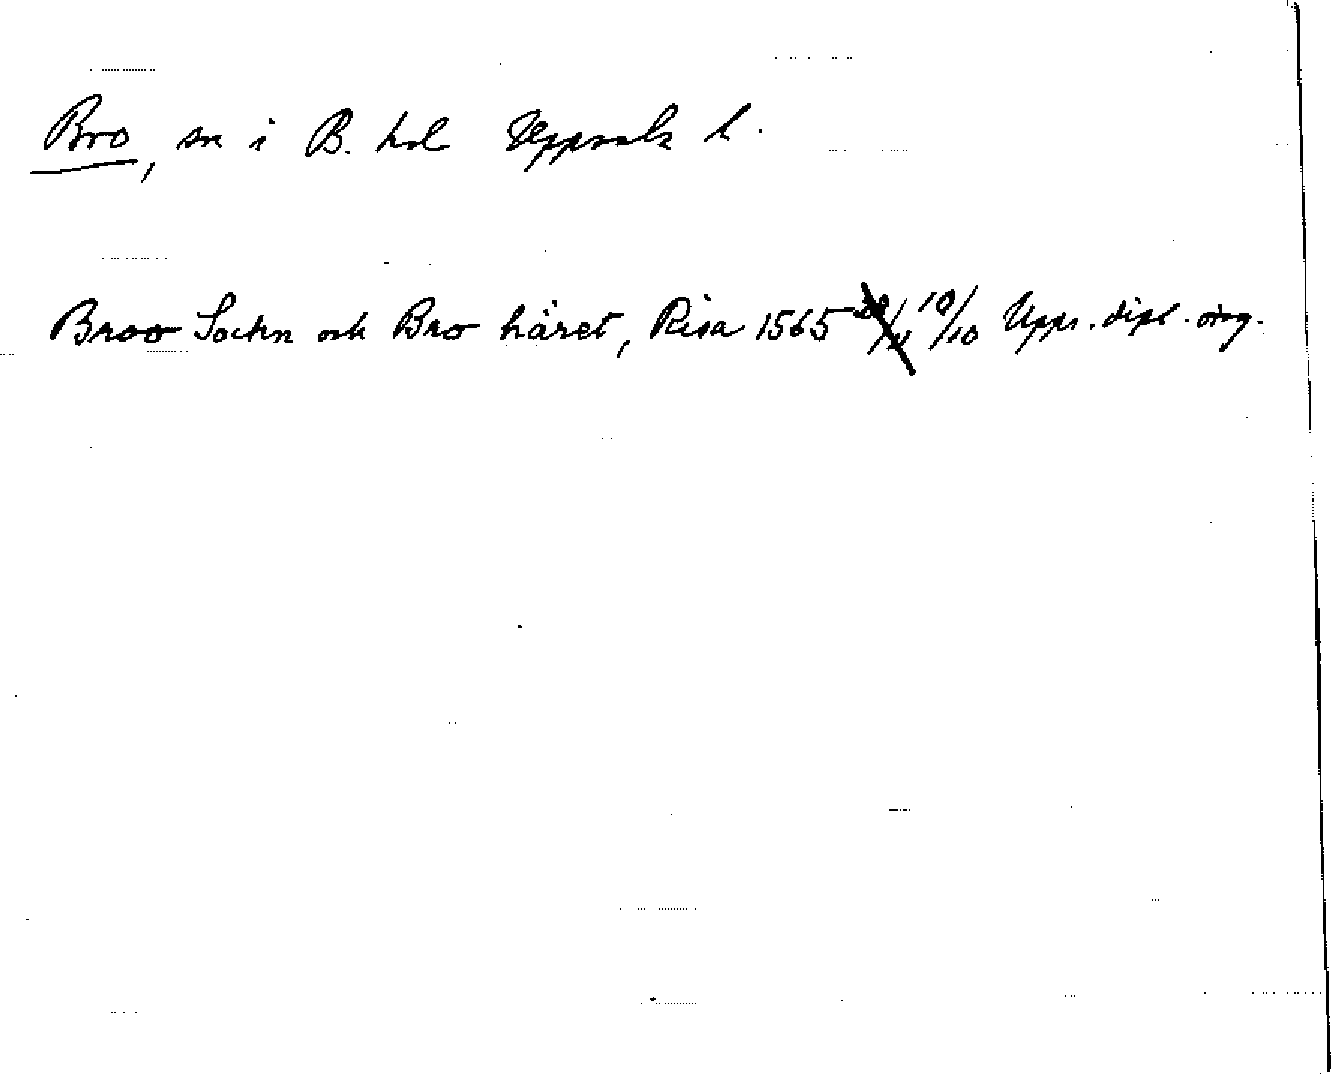 Bro, sn i B. hd Uppsala l.
Broo Sochn och Bro häret, Risa 1565 10/10 Upps. dipl. orig.